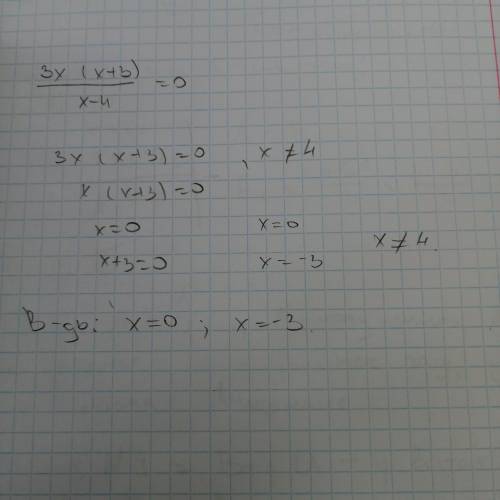 3x (x+3)
x-4 =0
3x (x+3)=0 , x ≠ 4
x (x+3)=0
x=0 x=0
x+3=0 x=-3 x ≠ 4.
В-дь: x=0 ; x=-3.